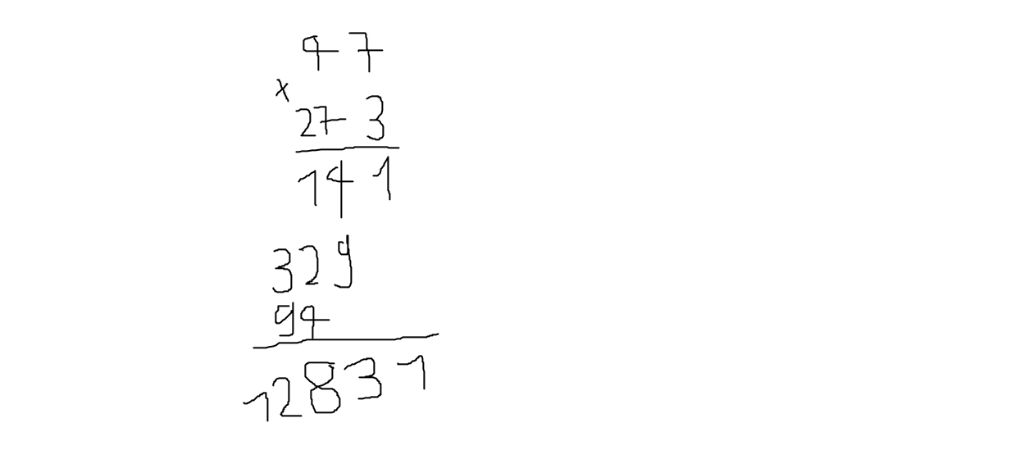 47
x
273
141
329
94
12831